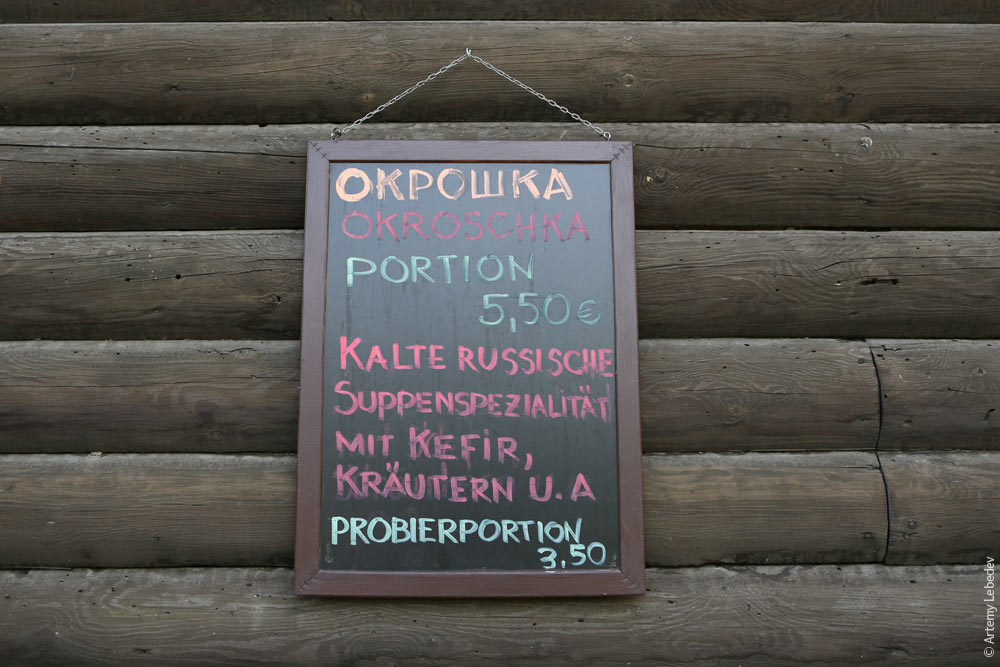 ОКРОШКА
OKROSCHKA
PORTION
5,50€
KALTE RUSSISCHE
SUPPENSPEZIALITÄT
MIT KEFIR,
KRÄUTERN U.A
PROBIERPORTION
3,50
© Artemy Lebedev